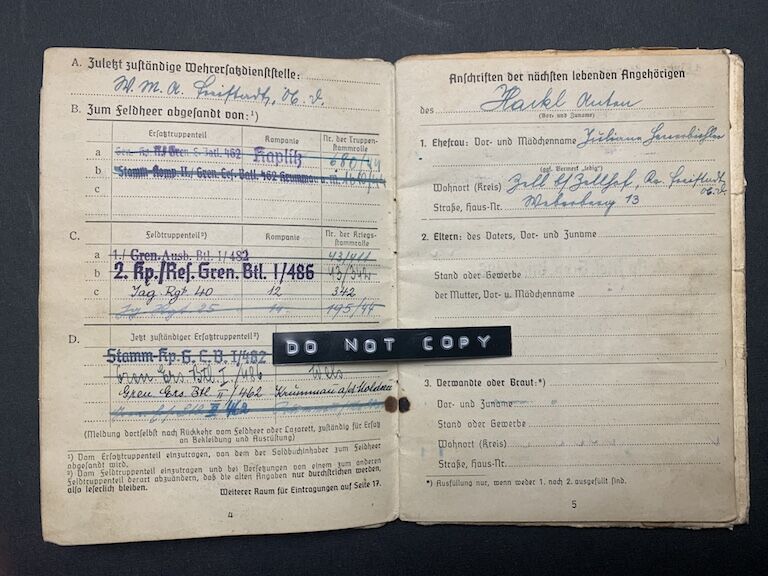 A. Zuletzt zuständige Wehrersatzdienststelle:
W. M. A. Freistadt, Ob. d.
B. Zum Feldheer abgesandt von:¹)
Ersatztruppenteil
Kompanie
Nr. der Truppenstammrolle
a Gren. Ers. Batl. 462 Kaplitz 680/44
b Stamm-Komp. II./ Gren. Ers. Batl. 462 Krummau a. M.
c
C.
Feldtruppenteil²)
Kompanie
Nr. der Kriegsstammrolle
a 1./ Gren. Ausb. Btl. I/482 43/411
b 2. Kp./Res. Gren. Btl. I/486 43/342
c Jäg. Rgt. 40 12 342
Jg. Rgt. 25 11. 195/44
D.
Jetzt zuständiger Ersatztruppenteil²)
Stamm-Kp. G. E. B. I/482
Gren. Ers. Btl. I/486 Wels
Gren. Ers. Btl. II/462 Krummau a/d Moldau
(Meldung dortselbst nach Rückkehr vom Feldheer oder Lazarett, zuständig für Ersatz
an Bekleidung und Ausrüstung)
¹) Vom Ersatztruppenteil einzutragen, von dem der Soldbuchinhaber zum Feldheer
abgesandt wird.
²) Vom Feldtruppenteil einzutragen und bei Versetzungen von einem zum anderen
Feldtruppenteil derart abzuändern, daß die alten Angaben nur durchstrichen werden,
also leserlich bleiben.
Weiterer Raum für Eintragungen auf Seite 17.
4
DO NOT COPY
Anschriften der nächsten lebenden Angehörigen
des Hackl Anton
(Vor- und Zuname)
1. Ehefrau: Vor- und Mädchenname Juliana
(ggf. Vermerk „ledig")
Wohnort (Kreis) Zell b/Zellhof, Kr. Freistadt
Ob. d.
Straße, Haus-Nr. Weberberg 13
2. Eltern: des Vaters, Vor- und Zuname
Stand oder Gewerbe
der Mutter, Vor- u. Mädchenname
3. Verwandte oder Braut:*)
Vor- und Zuname
Stand oder Gewerbe
Wohnort (Kreis)
Straße, Haus-Nr.
*) Ausfüllung nur, wenn weder 1. noch 2. ausgefüllt sind.
5